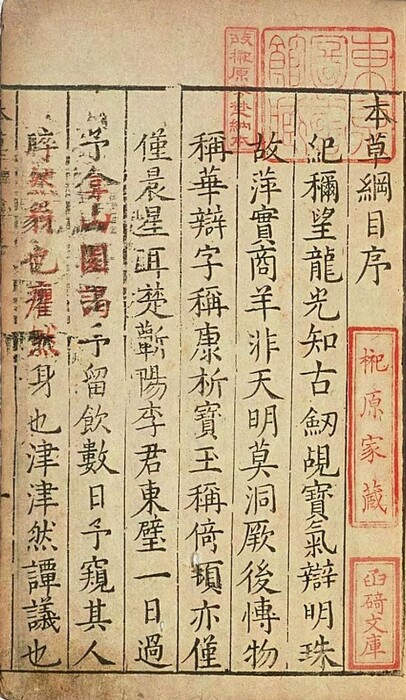 本草綱目序
紀穪望龍光知古劒覘寶氣辯明珠
故萍實商羊非天明莫洞厥後愽物
稱華辯字稱康析寶玉稱倚頓亦僅
僅晨星耳楚蘄陽李君東璧一日過
予弇山園謁予留飲數日予窺其人
睟然貌也癯然身也津津然譚議也
東京圖書館藏
故榊原芳埜納本
榊原家藏
函碕文庫